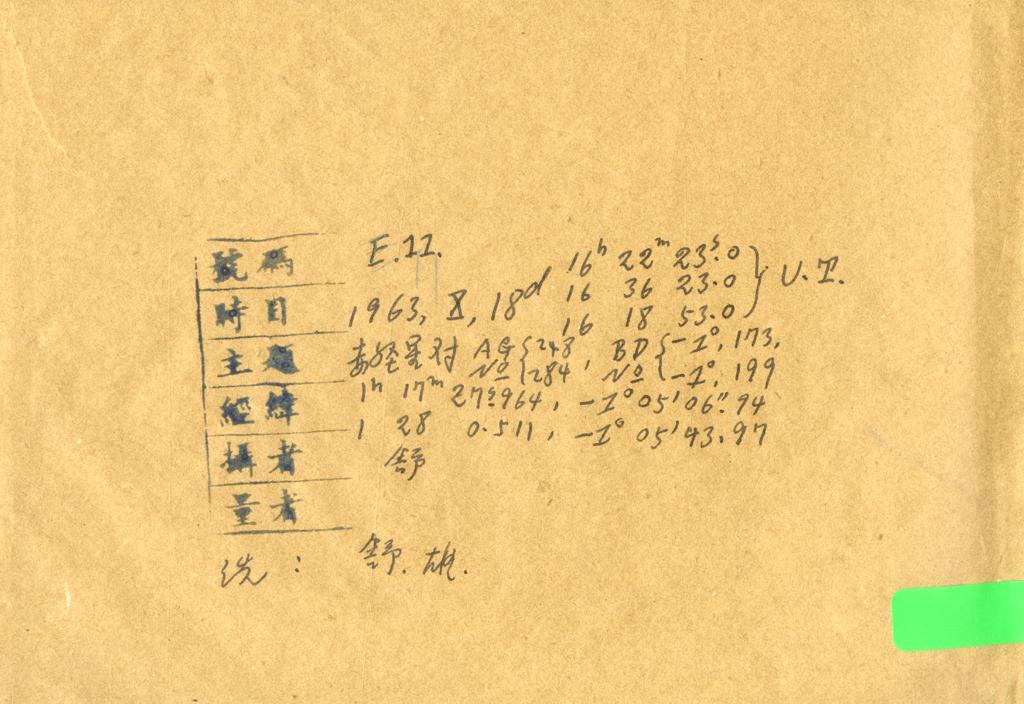 號碼 E.11.
16ʰ 22ᵐ 23ˢ.0
時日 1963, X, 18ᵈ 16 36 23.0 } U.T.
16 18 53.0
主題 赤經星对 AG { 248, BD { -1°, 173,
Nº { 284, Nº { -1°, 199
經緯 1ʰ 17ᵐ 27ˢ.964, -1° 05′ 06″.94
1 28 0.511, -1° 05′ 43.97
攝者 舒
量者
洗: 舒. 雄.